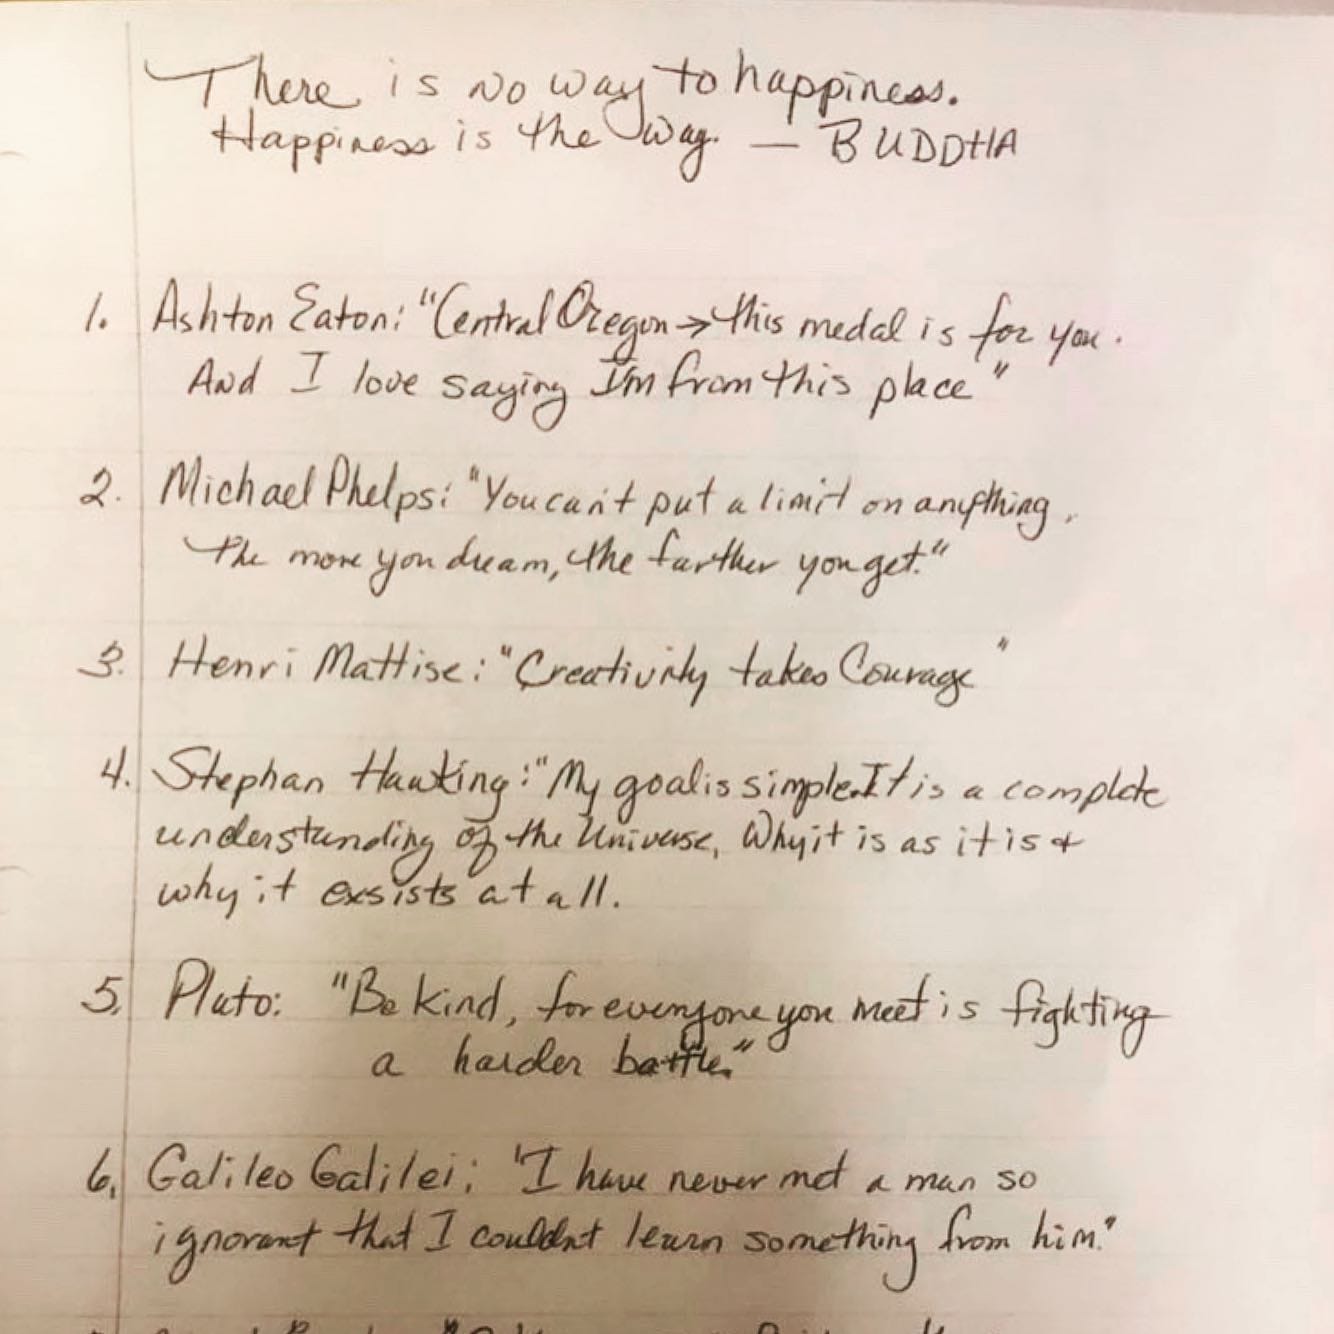 There is no way to happiness.
Happiness is the way. — BUDDHA
1. Ashton Eaton: "Central Oregon → this medal is for you.
And I love saying I'm from this place"
2. Michael Phelps: "You can't put a limit on anything.
The more you dream, the farther you get."
3. Henri Mattise: "Creativity takes Courage"
4. Stephan Hawking: "My goal is simple. It is a complete
understanding of the Universe, Why it is as it is &
why it exsists at all.
5. Plato: "Be kind, for everyone you meet is fighting
a harder battle."
6. Galileo Galilei: "I have never met a man so
ignorant that I couldn't learn something from him."